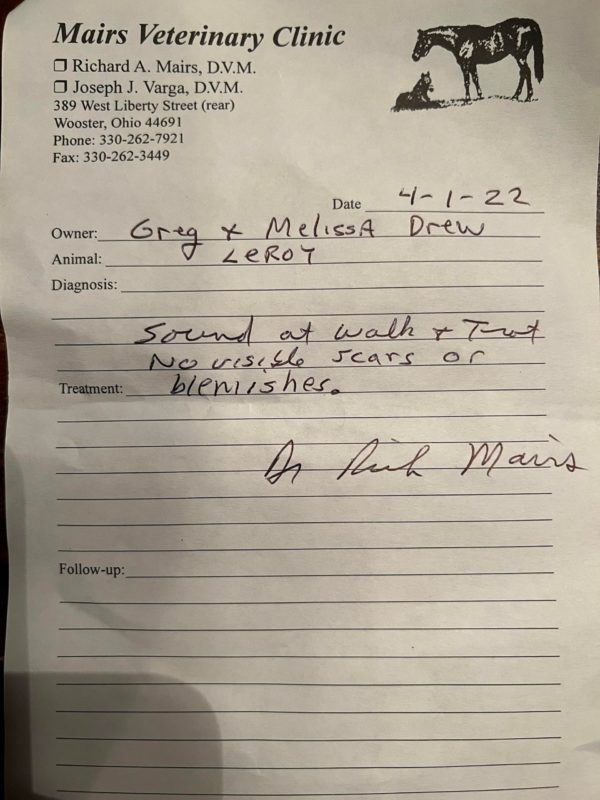 Mairs Veterinary Clinic
❐ Richard A. Mairs, D.V.M.
❐ Joseph J. Varga, D.V.M.
389 West Liberty Street (rear)
Wooster, Ohio 44691
Phone: 330-262-7921
Fax: 330-262-3449
Date 4-1-22
Owner: Greg & Melissa Drew
Animal: LeRoy
Diagnosis:
Sound at walk & Trot
No visible scars or
Treatment: blemishes.
Dr Rich Mairs
Follow-up: